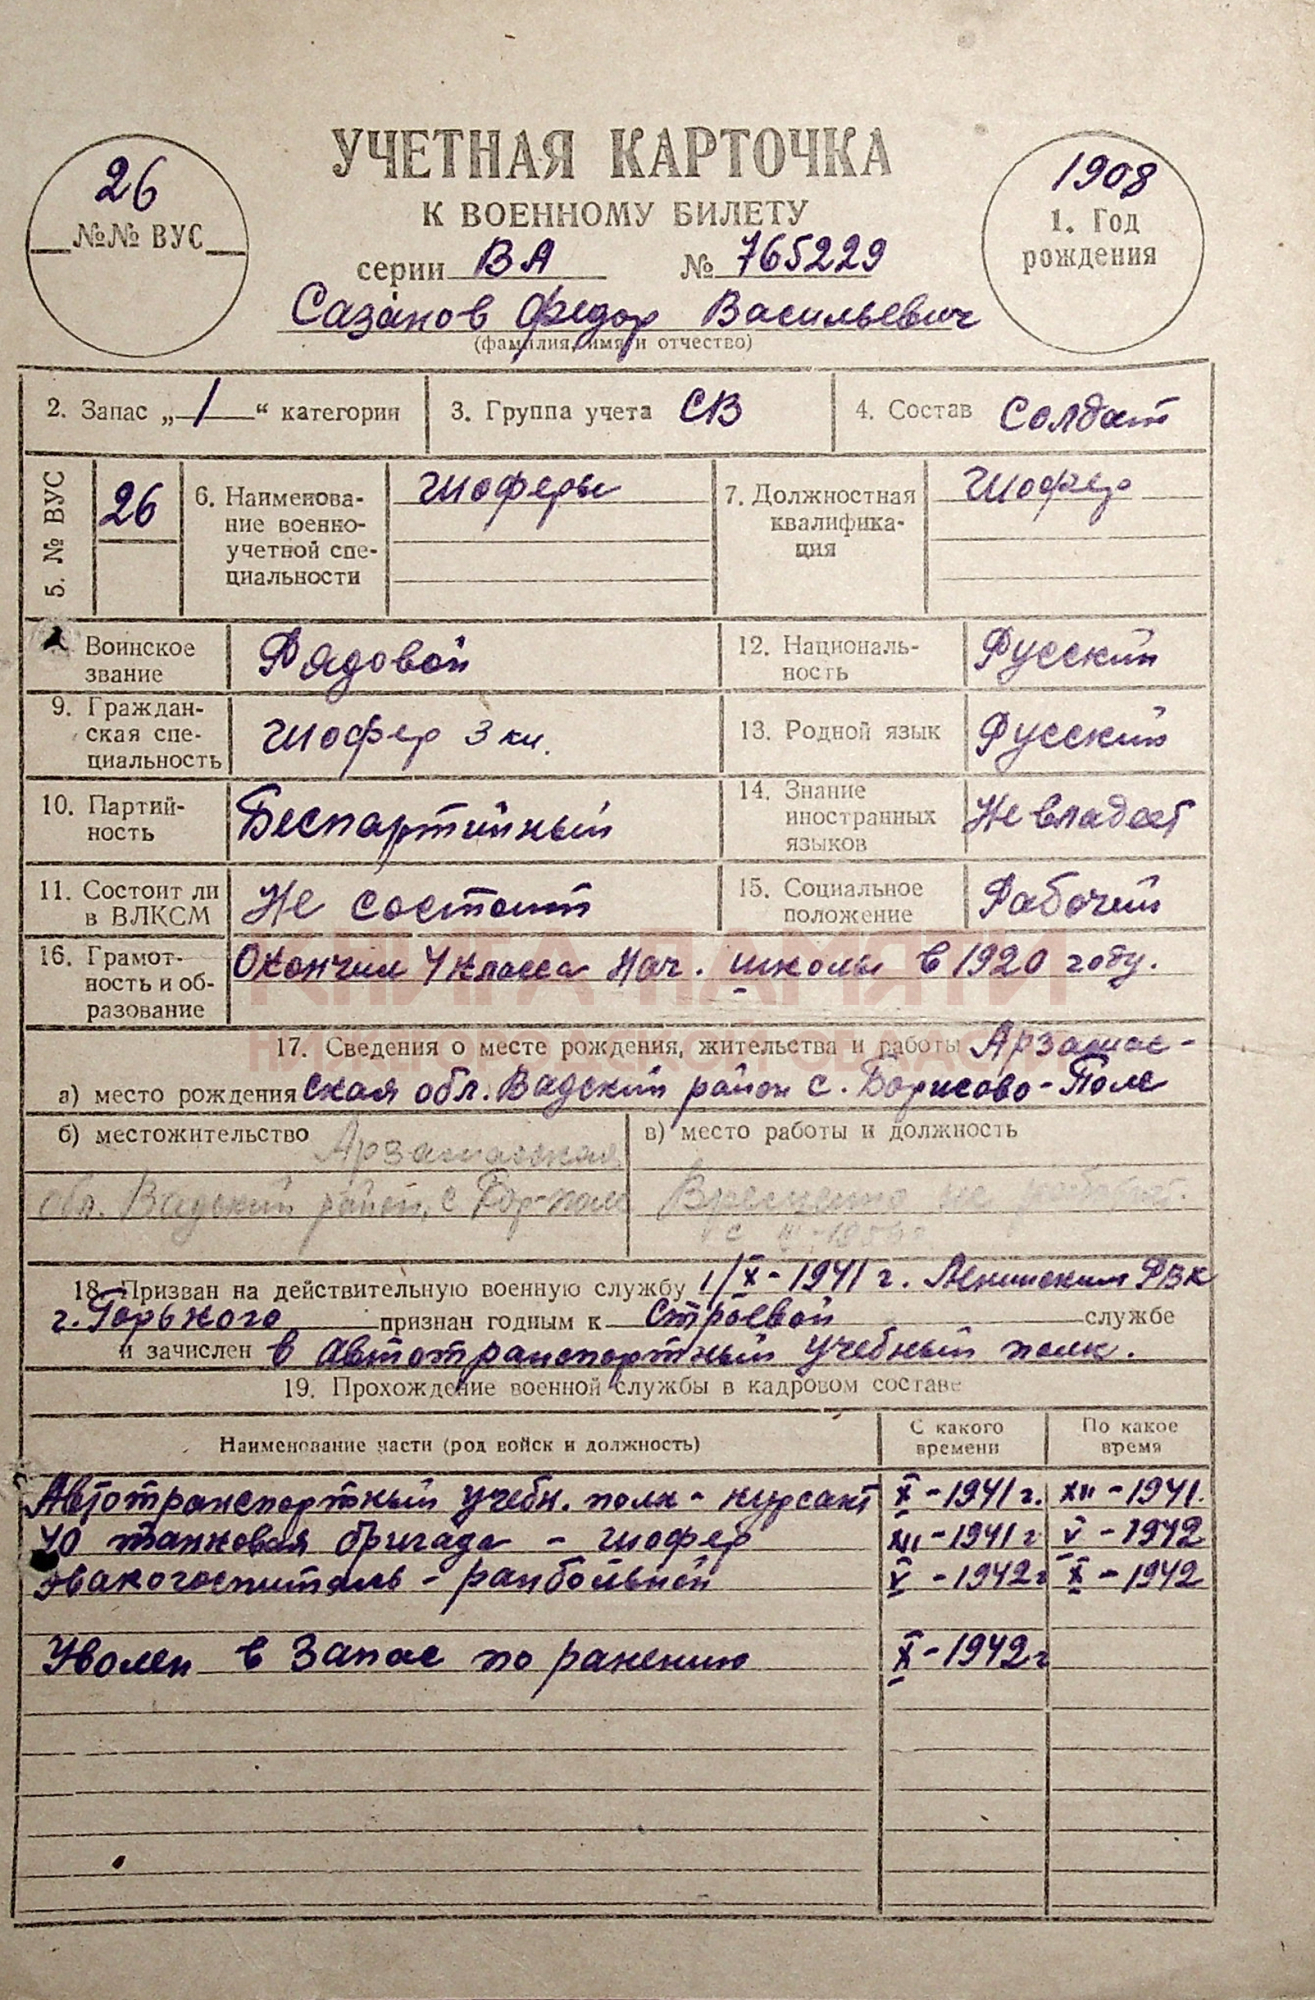 УЧЕТНАЯ КАРТОЧКА
К ВОЕННОМУ БИЛЕТУ
26
№№ ВУС
1908
1. Год
рождения
серии ВА № 765229
Сазанов Федор Васильевич
(фамилия, имя и отчество)
2. Запас „1“ категории
3. Группа учета СВ
4. Состав Солдат
5. № ВУС
26
6. Наименова-
ние военно-
учетной спе-
циальности
Шоферы
7. Должностная
квалифика-
ция
Шофер
Воинское
звание
Рядовой
12. Националь-
ность
Русский
9. Граждан-
ская спе-
циальность
Шофер 3 кл.
13. Родной язык
Русский
10. Партий-
ность
Беспартийный
14. Знание
иностранных
языков
Не владеет
11. Состоит ли
в ВЛКСМ
Не состоит
15. Социальное
положение
Рабочий
16. Грамот-
ность и об-
разование
Окончил 4 класса нач. школы в 1920 году.
КНИГА ПАМЯТИ
НИЖЕГОРОДСКОЙ ОБЛАСТИ
17. Сведения о месте рождения, жительства и работы Арзамас-
а) место рождения ская обл. Вадский район с. Борисово-Поле
б) местожительство Арзамасская
обл. Вадский район, с Бор-поле
в) место работы и должность
Временно не работает.
с
18. Призван на действительную военную службу 1/X-1941 г. Ленинским РВК
г. Горького признан годным к строевой службе
и зачислен в автотранспортный учебный полк.
19. Прохождение военной службы в кадровом составе
Наименование части (род войск и должность)
С какого
времени
По какое
время
Автотранспортный учебн. полк - курсант X-1941 г. XII-1941.
40 танковая бригада - шофер XII-1941 г V-1942
Эвакогоспиталь - ранбольной V-1942 г X-1942
Уволен в запас по ранению X-1942 г